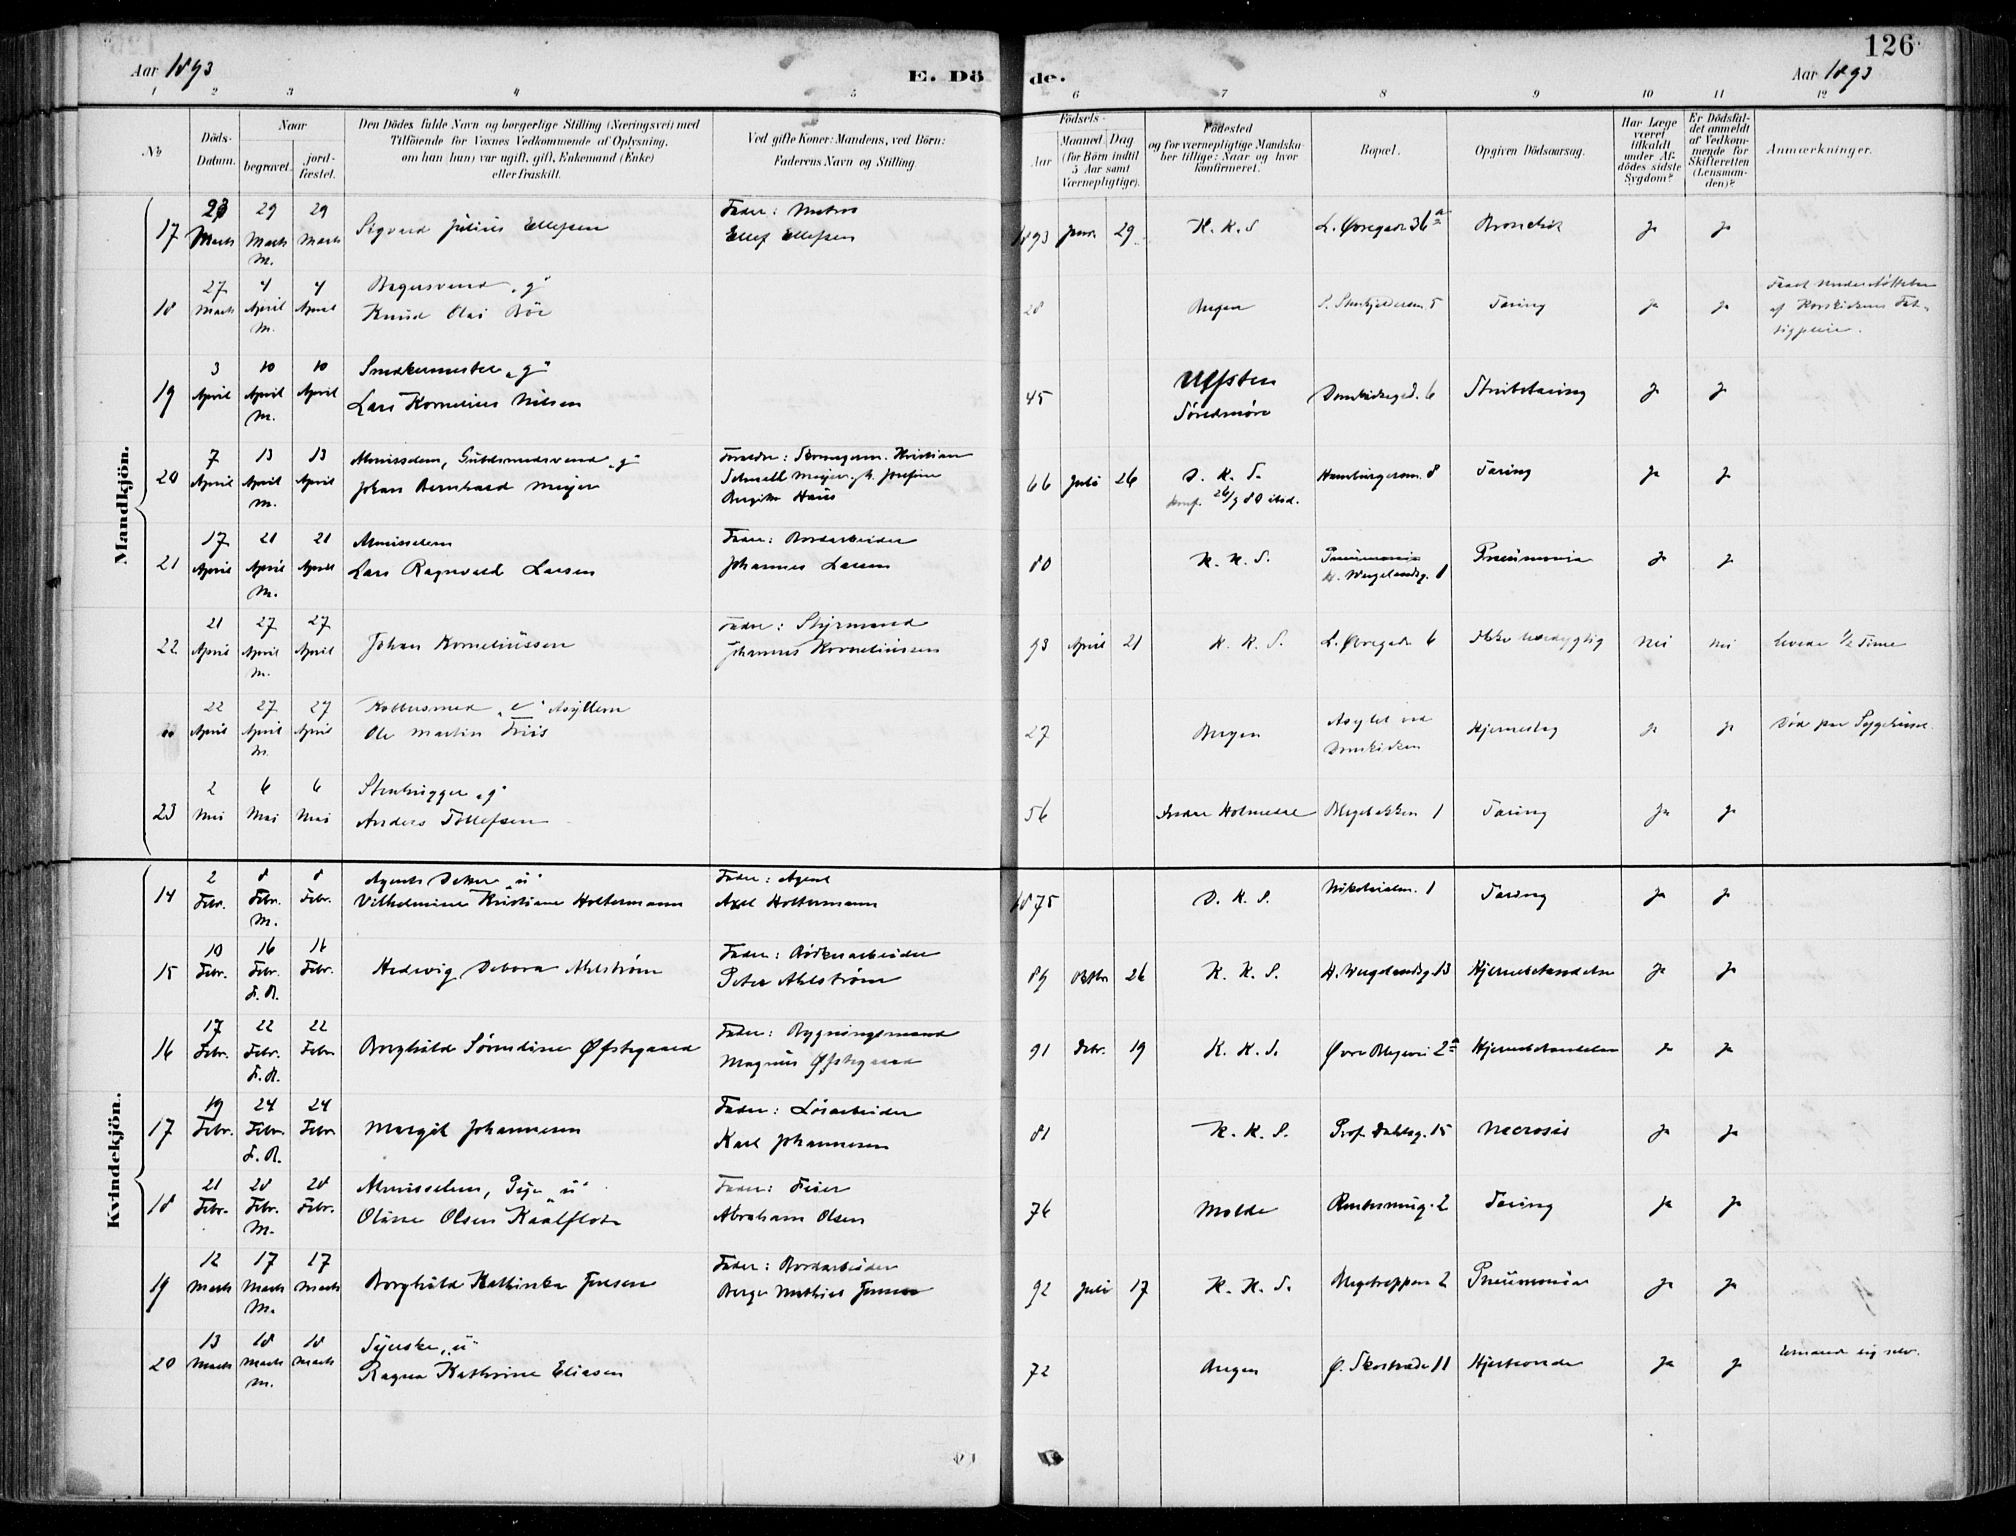 126
Aar 1893
E. Dö de.
Aar 1893
1 2 3 4 5 6 7 8 9 10 11 12
No
Döds-Datum.
Naar
begravet.
jord-fæstet.
Den Dödes fulde Navn og borgerlige Stilling (Næringsvei) med
Tilföiende for Voxnes Vedkommende af Oplysning,
om han (hun) var ugift, gift, Enkemand (Enke)
eller fraskilt.
Ved gifte Koner: Mandens, ved Börn:
Faderens Navn og Stilling.
Födsels-
Aar
Maaned Dag
(for Börn indtil
5 Aar samt
Værnepligtige).
Födested
og for værnepligtige Mandska-
ber tillige: Naar og hvor
konfirmeret.
Bopæl.
Opgiven Dödsaarsag.
Har Læge
været
tilkaldt
under Af-
dödes sidste
Sygdom?
Er Dödsfal-
det anmeldt
af Vedkom-
mende for
Skifteretten
(Lensman-
den)?
Anmærkninger.
Mandkjön.
17 23 Marts 29 Marts M. 29 Marts Sigvard Julius Ellefsen Fader: Matros Ellef Ellefsen 1893 Janr. 29 K. K. S L. Øvregade 36a Bronchit ja ja
18 27 Marts 4 April M. 4 April Bagersvend "g" Knud Olai 28 Bergen 5 Tæring ja ja
19 3 April 10 April M. 10 April Snedkermester "g" Lars Kornelius Nilsen 45 Ulfsten Söndmöre Domkirkegd. 6 Strubetæring ja ja
20 7 April 13 April M. 13 April Almisselem, Guldsmedsvend "g" Johan Bernhard Meyer Forældre: Kristian Meyer 66 Juli 26 D. K. S. konf. 26/9 80 ibid. Hamburgersm. 8 Tæring ja ja
21 17 April 21 April M. 21 April Almisselem Lars Ragnvald Larsen Fader: Bordarbeider Johannes Larsen 80 K. K. S. H. Wergelandsg. 8 Pneumonia ja ja
22 21 April 27 April M. 27 April Johan Korneliussen Fader: Styrmand Johannes Korneliussen 93 April 21 K. K. S. L. Øvregade 6 Ikke levedygtig Nei Nei levede 1/2 Time
22 April 27 April M. 27 April Kobbersmed "e" Asyllem Ole Martin Friis 27 Bergen Asylet ved Domkirken Hjerneslag ja ja Död paa Sygehuset.
23 2 Mai 6 Mai 6 Mai Stenhugger "g" Anders Tollefsen 56 Indre Holmedal Blegebakken 1 Tæring ja ja
Kvindekjön.
14 2 Febr. 8 Febr. M. 8 Febr. Agents Datter "u" Vilhelmine Kristiane Holtermann Fader: Agent Axel Holtermann 1875 D. K. S. Nikolaialm. 1 Tæring ja ja
15 10 Febr. 16 Febr. F. R. 16 Febr. Hedevig Debora Ahlström Fader: Bödkerarbeider Peter Ahlström 89 Oktbr 26 K. K. S. H. Wergelandsg. 13 Hjernebetændelse ja ja
16 17 Febr. 22 Febr. F. R. 22 Febr Borghild Sörendine Øfstegaard Fader: Bygningsmand Magnus Øfstegaard 91 Febr. 19 K. K. S. Øvre Blegevei 2a Hjernebetændelse ja ja
17 19 Febr. 24 Febr F. R. 24 Febr Margit Johannesen Fader: Lösarbeider Karl Johannesen 81 K. K. S. Prof. Dahlsg. 15 Necrosis ja ja
18 21 Febr. 28 Febr. M. 28 Febr. Almisselem, Pige "u" Oline Olsen Kaalflot Fader: Feier Abraham Olsen 76 Molde 2 Tæring ja ja
19 12 Marts 17 Marts M. 17 Marts Borghild Kathinka Jensen Fader: Bordarbeider Berge Mathias Jensen 92 Juli 17 K. K. S. Blegetrappen 2 Pneumonia ja ja
20 13 Marts 18 Marts M. 18 Marts Syerske "u" Ragna Kathrine Eliasen 72 Bergen Ø. Skostræde 11 Hjerteonde ja ja Ernærede sig selv.